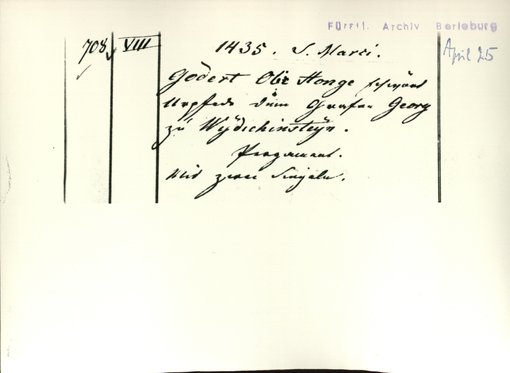 Fürstl. Archiv Berleburg
708. VIII 1435. S. Marci. April 25
Godert Obir Honge schwört
Urpfede dem Grafen Georg
zu Wydchinsteyn.
Pergament.
Mit zwei Siegeln.